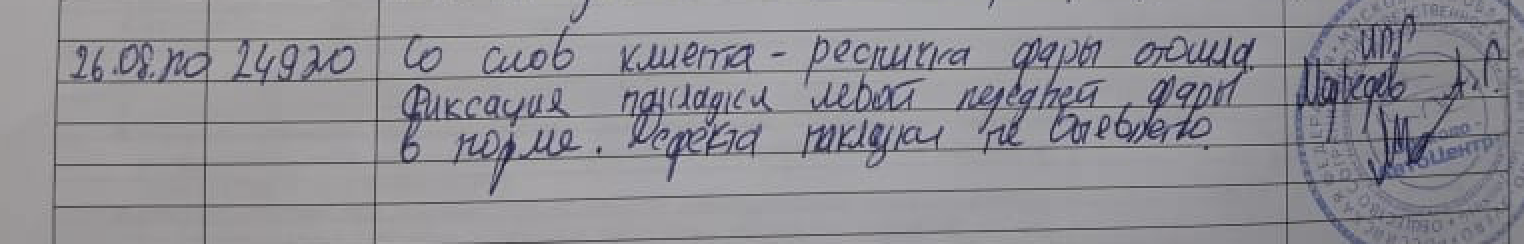 26.08.20 24920 Со слов клиента - ресничка фары отошла.
Фиксация накладки левой передней фары
в норме. Дефекта накладки не выявлено.
ИПГ
Медведев А.Г.
АвтоЦентр